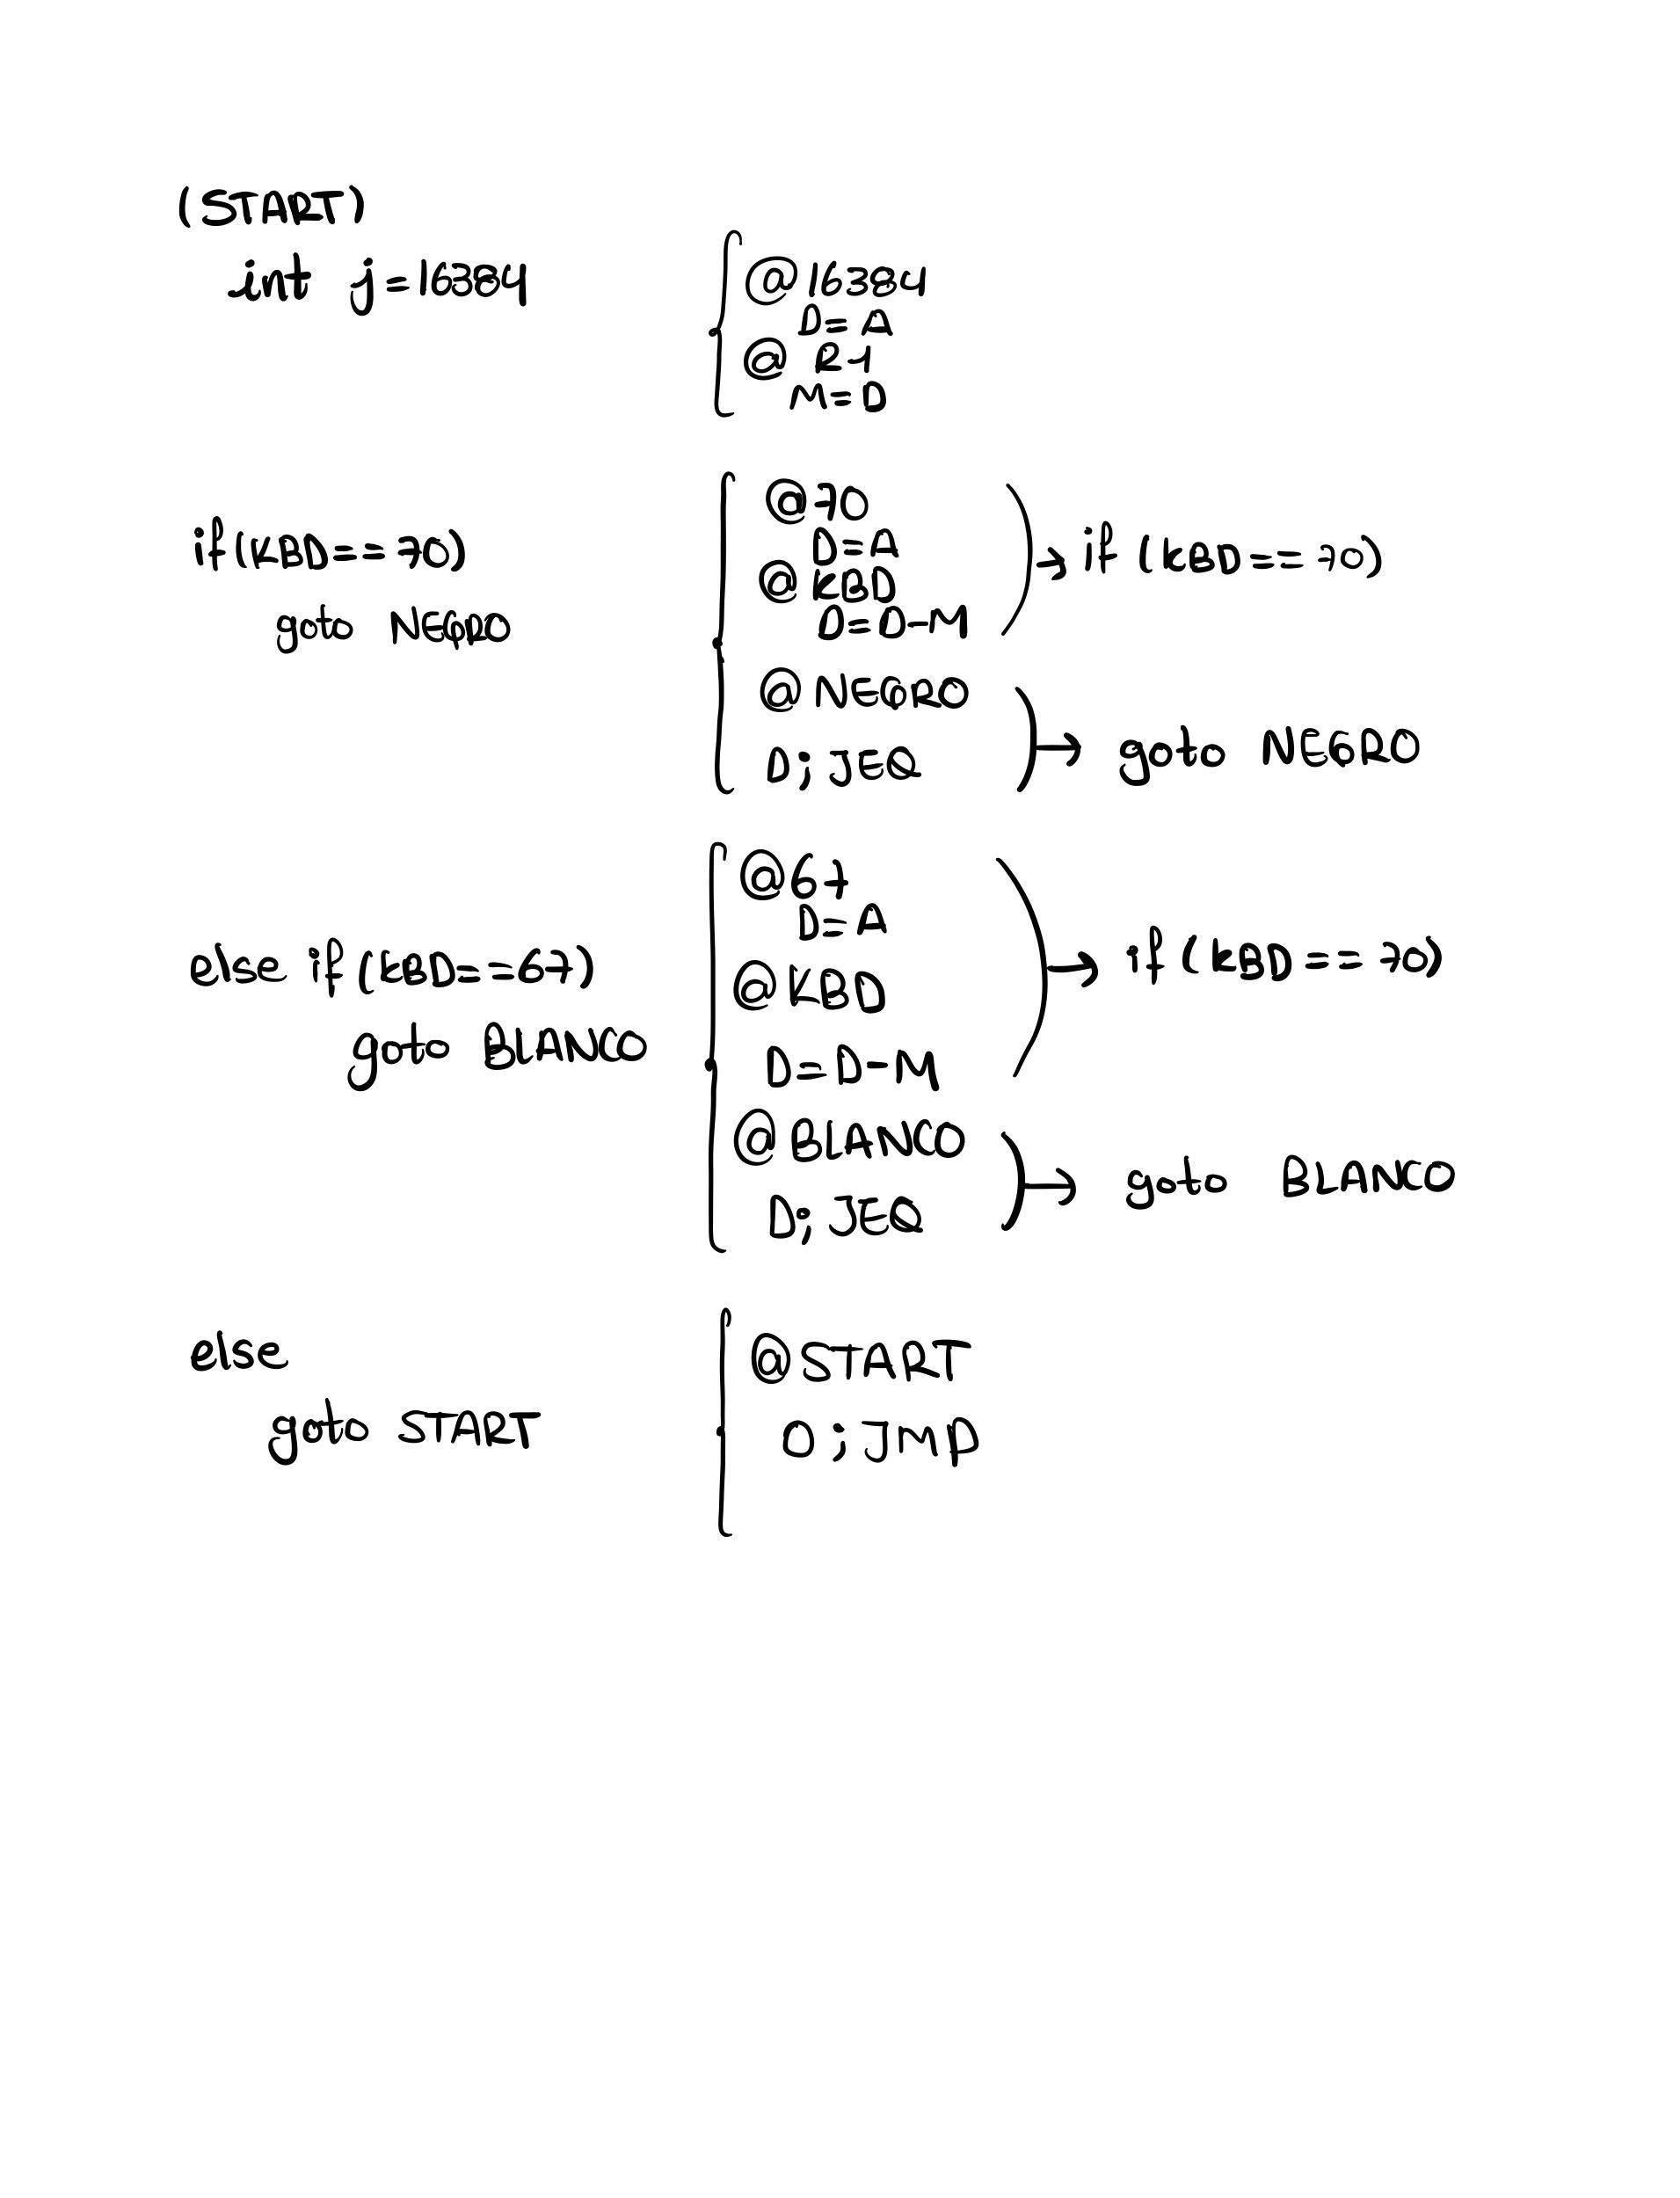 (START)
int j=16384
@16384
D=A
@ R1
M=D
if (KBD==70)
goto NEGRO
@70
D=A
@KBD
D=D-M
if (KBD==70)
@NEGRO
D;JEQ
goto NEGRO
else if (KBD==67)
goto BLANCO
@67
D=A
@KBD
D=D-M
if (KBD==70)
@BLANCO
D;JEQ
goto BLANCO
else
goto START
@START
0;JMP